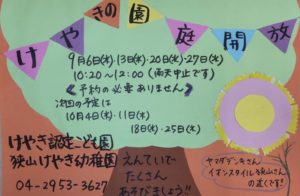 けやきの園庭開放
9月6日(水)・13日(水)・20日(水)・27日(水)
10:20〜12:00 (雨天中止です)
《予約の必要ありません》
次回の予定は
10月4日(水)・11日(水)
18日(水)・25日(水)
けやき認定こども園
狭山けやき幼稚園
04-2953-3627
えんていで
たくさん
あそびましょう!!
ヤマダデンキさん
イオンスタイル狭山さん
の近くです!